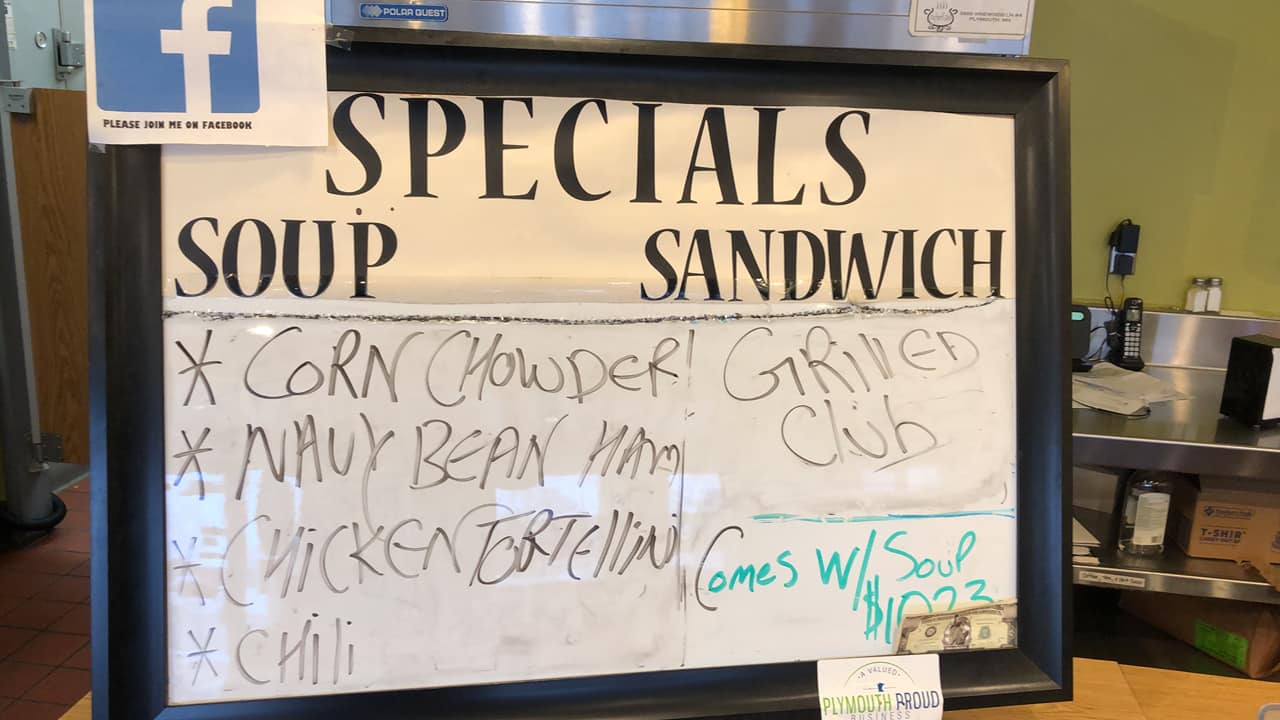 POLAR QUEST
PLYMOUTH, MN
f
PLEASE JOIN ME ON FACEBOOK
SPECIALS
SOUP
SANDWICH
* CORN CHOWDER
* NAVY BEAN HAM
* CHICKEN TORTELLINI
* CHILI
GRILLED
Club
Comes W/ Soup
A VALUED
PLYMOUTH PROUD
BUSINESS
T-SHIRT